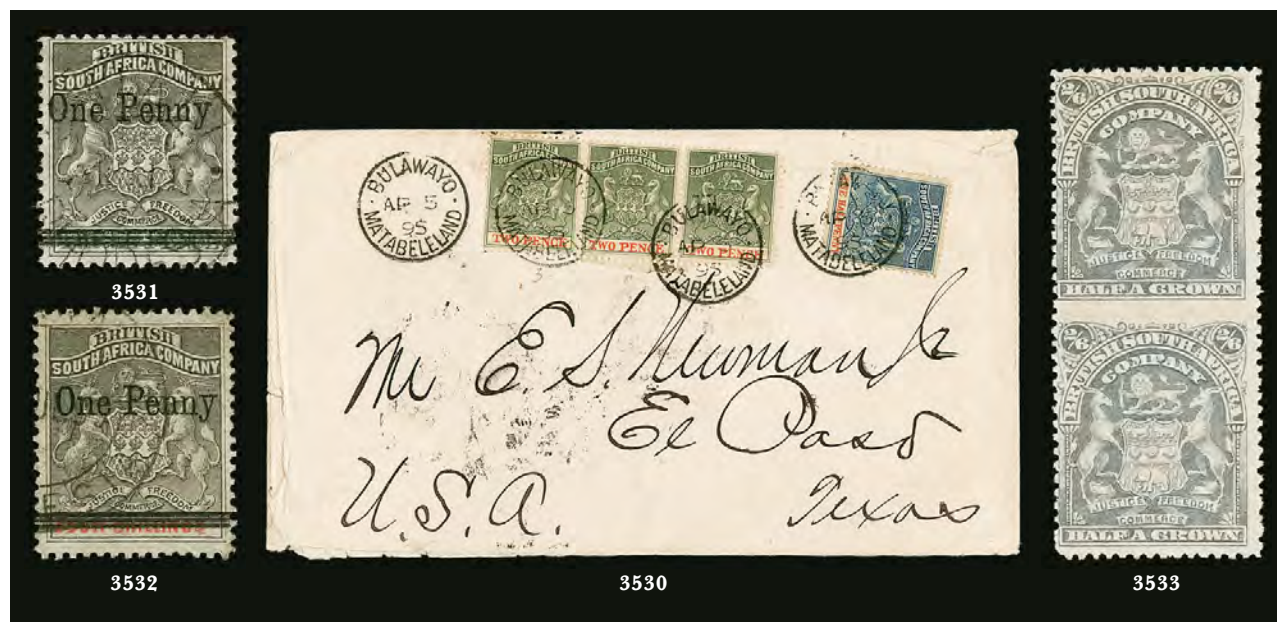 BRITISH
SOUTH AFRICA COMPANY
One Penny
JUSTICE FREEDOM
COMMERCE
3531
BRITISH
SOUTH AFRICA COMPANY
One Penny
JUSTICE FREEDOM
COMMERCE
3532
BULAWAYO
AP 5
95
MATABELELAND
BRITISH
SOUTH AFRICA COMPANY
TWO PENCE
BULAWAYO
MATABELELAND
BRITISH
SOUTH AFRICA COMPANY
TWO PENCE
BRITISH
SOUTH AFRICA COMPANY
TWO PENCE
BULAWAYO
95
MATABELELAND
BRITISH
SOUTH AFRICA COMPANY
MATABELELAND
Mr E. S. Newman Jr
El Paso
U.S.A. Texas
3530
2/6 2/6
BRITISH SOUTH AFRICA
COMPANY
JUSTICE FREEDOM
COMMERCE
HALF A CROWN
2/6 2/6
BRITISH SOUTH AFRICA
COMPANY
JUSTICE FREEDOM
COMMERCE
HALF A CROWN
3533